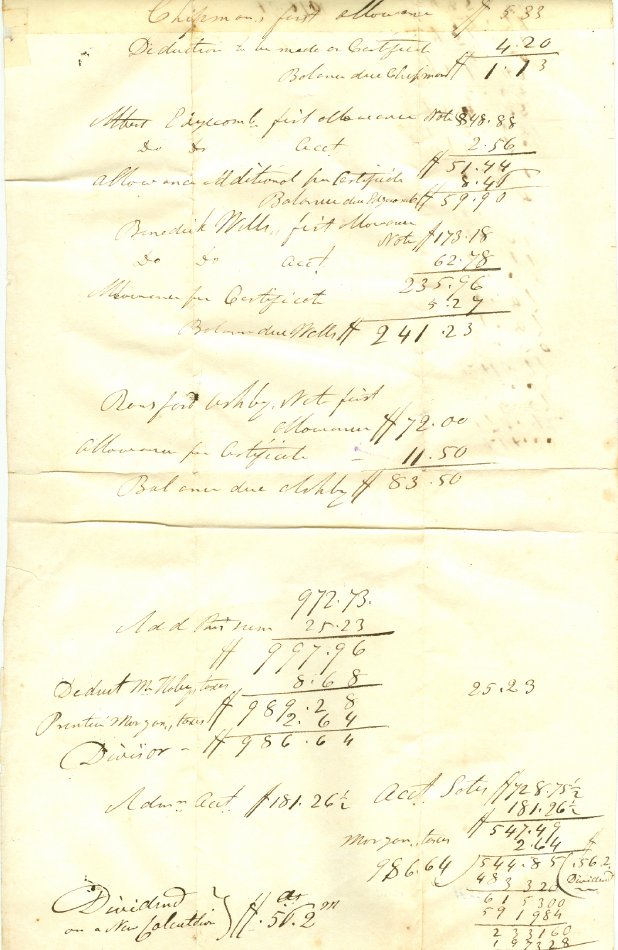 Chipman's first allowance $ 5.33
Deduction to be made on Certificate 4.20
Balance due Chipman $ 1.13
Albert Edgecomb first allowance Note $48.88
Do Do Acct 2.56
$ 51.44
Allowance additional per Certificate 8.46
Balance due Edgecomb $ 59.90
Benedick Wells, first allowance
Note $173.18
Do Do Acct 62.78
235.96
Allowance per Certificate 5.27
Balance due Wells $ 241.23
Ransford Ashby, Note first
allowance $72.00
Allowance per Certificate 11.50
Balance due Ashby $ 83.50
972.73.
Add this sum 25.23
$ 997.96
Deduct taxes 8.68
25.23
$ 989.28
Prentice Morgan, taxes 2.64
Divisor - $ 986.64
Admn Acct. $181.26½ Acct Sales $728.75½
181.26½
$ 547.49
Morgan, taxes 2.64
986.64 ) 544.85 ( .56.2
Dividend
483 320
61 5300
59 1984
2 33160
1 97328
Dividend
on a New Calculation } $ .56.2